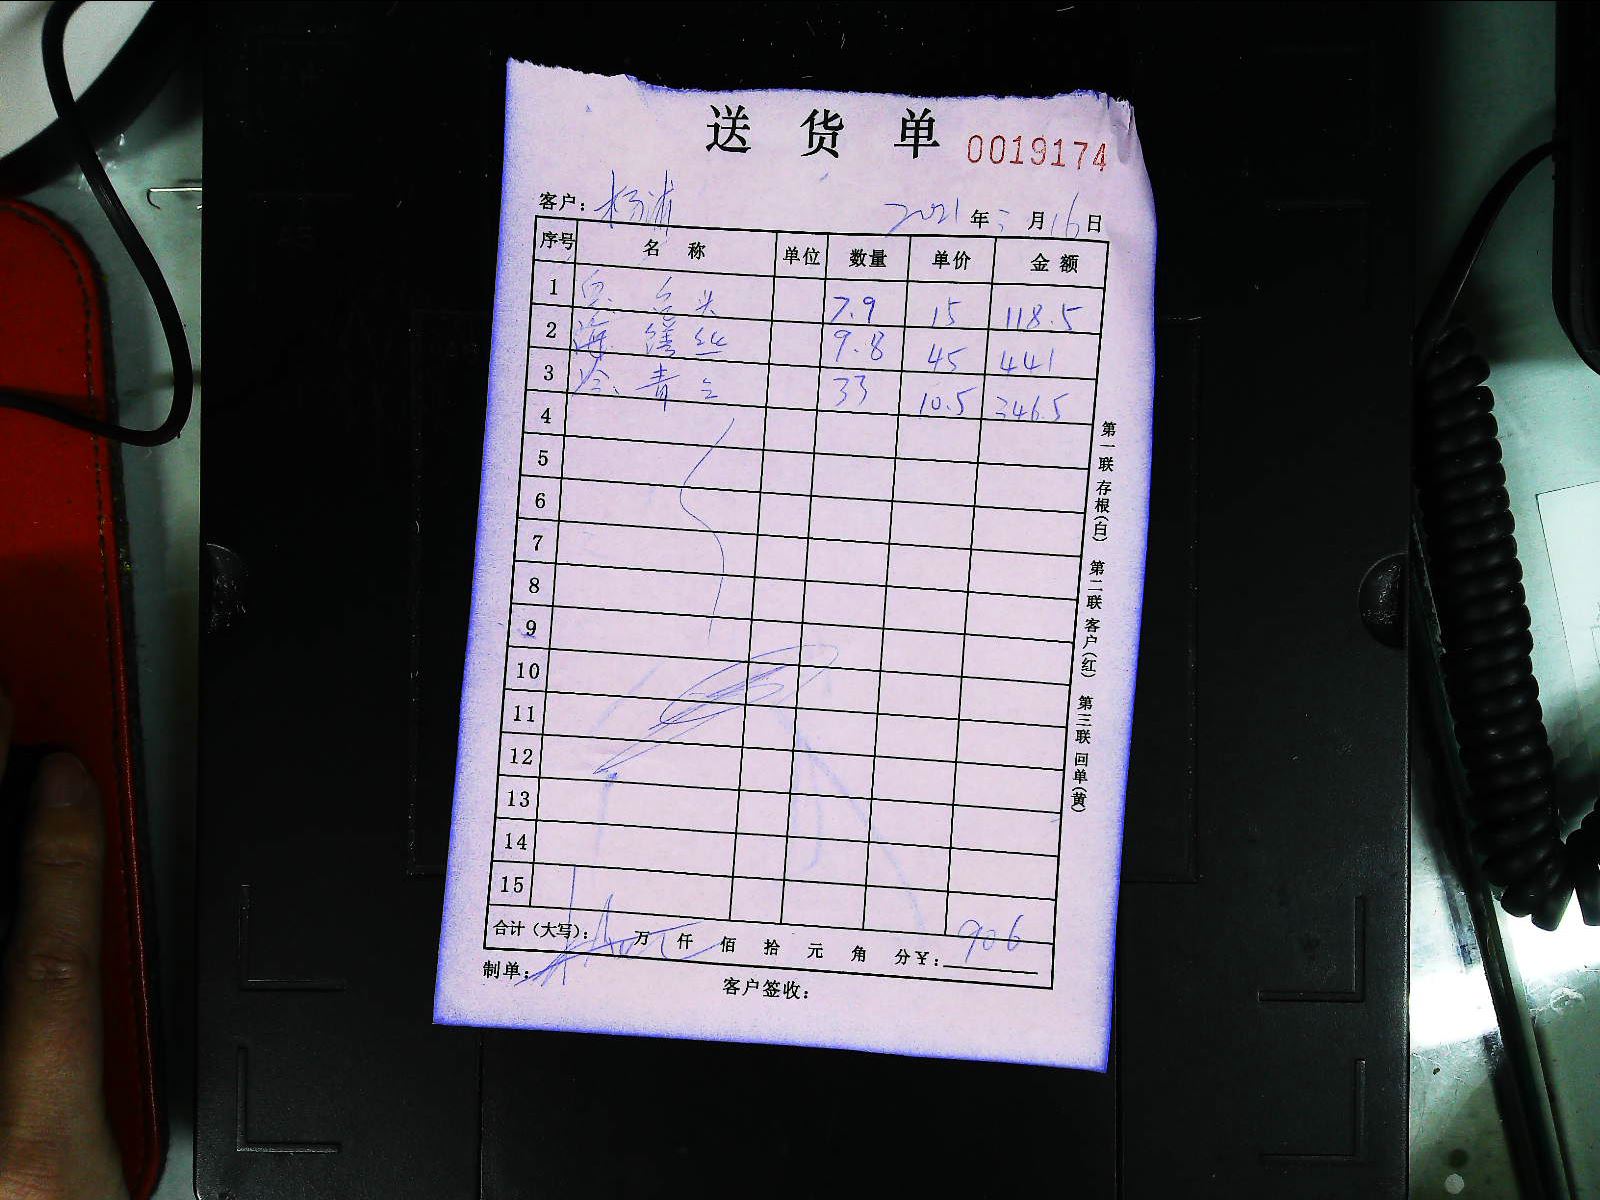 送货单 0019174
客户：杨浦 2021年3月16日
序号 名称 单位 数量 单价 金额
1 鱼头 7.9 15 118.5
2 海鳝丝 9.8 45 441
3 33 10.5 346.5
4
5
6
7
8
9
10
11
12
13
14
15
合计（大写）： 万 仟 佰 拾 元 角 分￥：906
制单： 客户签收：
第一联 存根（白） 第二联 客户（红） 第三联 回单（黄）